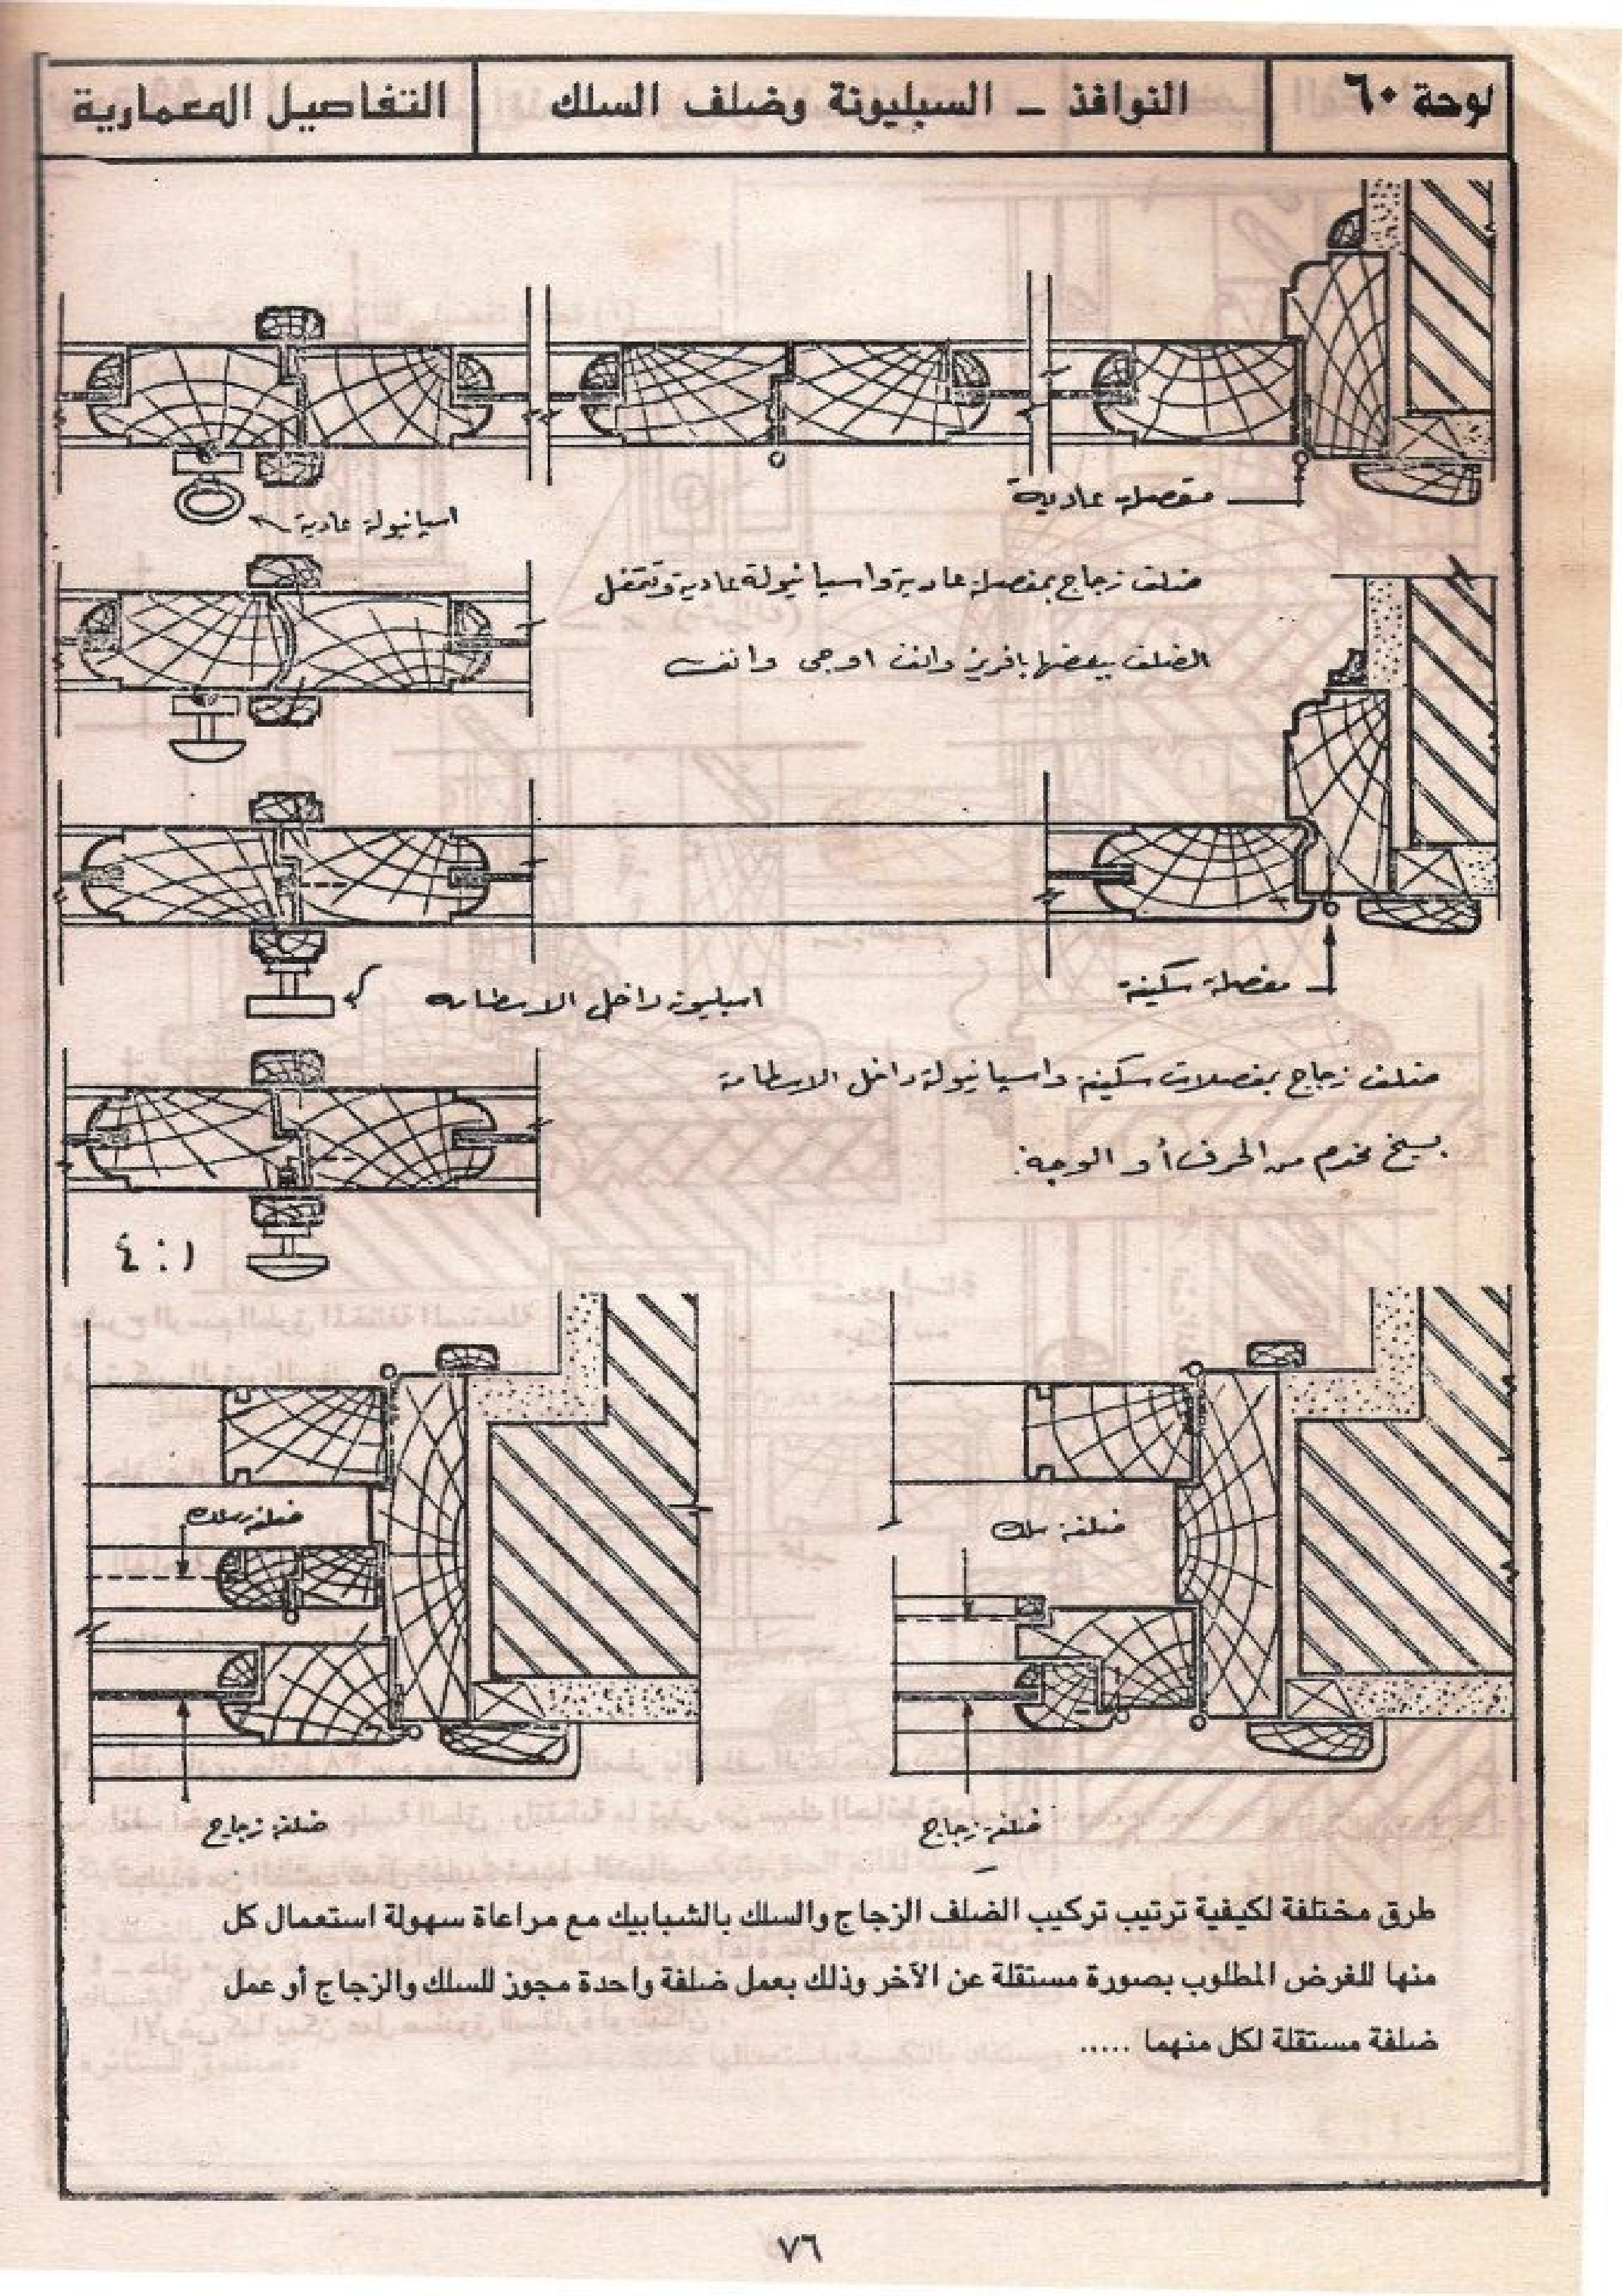 لوحة ٦٠
النوافذ - السبليونة وضلف السلك
التفاصيل المعمارية
مفصلة عادية
اسبانيولة عادية
ضلف زجاج بمفصلة عادية واسبانيولة عادية وتتقفل
الضلف ببعضها بافريز وانف او جى وانف
مفصلة سكينة
اسبليونة داخل الاسطامه
ضلف زجاج بمفصلات سكينة واسبانيولة داخل الاسطامة
بسيخ مخدم من الحرف أو الوجه.
١ : ٤
ضلفة سلك
ضلفة سلك
ضلفة زجاج
ضلفة زجاج
طرق مختلفة لكيفية ترتيب تركيب الضلف الزجاج والسلك بالشبابيك مع مراعاة سهولة استعمال كل
منها للغرض المطلوب بصورة مستقلة عن الآخر وذلك بعمل ضلفة واحدة مجوز للسلك والزجاج أو عمل
ضلفة مستقلة لكل منهما .....
٧٦